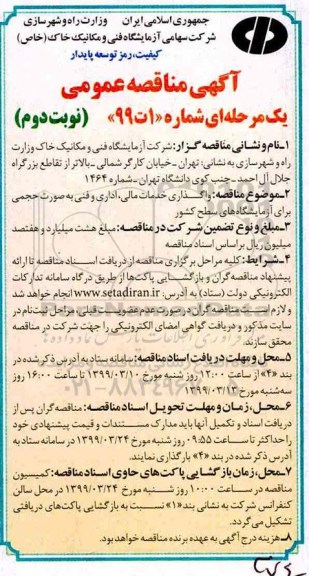 جمهوری اسلامی ایران   وزارت راه و شهرسازی
شرکت سهامی آزمایشگاه فنی و مکانیک خاک (خاص)
کیفیت، رمز توسعه پایدار
آگهی مناقصه عمومی
یک مرحله‌ای شماره «۱ت۹۹» (نوبت دوم)
۱ـ نام و نشانی مناقصه گزار: شرکت آزمایشگاه فنی و مکانیک خاک وزارت
راه و شهرسازی به نشانی: تهران ـ خیابان کارگر شمالی ـ بالاتر از تقاطع بزرگراه
جلال آل احمد ـ جنب کوی دانشگاه تهران ـ شماره ۱۴۶۴
۲ـ موضوع مناقصه: واگذاری خدمات مالی، اداری و فنی به صورت حجمی
برای آزمایشگاه‌های سطح کشور
۳ـ مبلغ و نوع تضمین شرکت در مناقصه: مبلغ هشت میلیارد و هفتصد
میلیون ریال بر اساس اسناد مناقصه
۴ـ شرایط: کلیه مراحل برگزاری مناقصه از دریافت اسناد مناقصه تا ارائه
پیشنهاد مناقصه گران و بازگشایی پاکت‌ها از طریق درگاه سامانه تدارکات
الکترونیکی دولت (ستاد) به آدرس: www.setadiran.ir انجام خواهد شد
و لازم است مناقصه گران در صورت عدم عضویت قبلی، مراحل ثبت‌نام در
سایت مذکور و دریافت گواهی امضای الکترونیکی را جهت شرکت در مناقصه
محقق سازند.
۵ـ محل و مهلت دریافت اسناد مناقصه: سامانه ستاد به آدرس ذکر شده در
بند «۴» از ساعت ۱۲:۰۰ روز شنبه مورخ ۱۳۹۹/۰۳/۱۰ تا ساعت ۱۶:۰۰ روز
سه‌شنبه مورخ ۱۳۹۹/۰۳/۱۳
۶ـ محل، زمان و مهلت تحویل اسناد مناقصه: مناقصه گران پس از
دریافت اسناد و تکمیل آنها باید مدارک مستندات و قیمت پیشنهادی خود
را حداکثر تا ساعت ۰۹:۵۵ روز شنبه مورخ ۱۳۹۹/۰۳/۲۴ در سامانه ستاد به
آدرس ذکر شده در بند «۴» بارگذاری نمایند.
۷ـ محل، زمان بازگشایی پاکت‌های حاوی اسناد مناقصه: کمیسیون
مناقصه در ساعت ۱۰:۰۰ روز شنبه مورخ ۱۳۹۹/۰۳/۲۴ در محل سالن
کنفرانس شرکت به نشانی بند «۱» نسبت به بازگشایی پاکت‌های دریافتی
تشکیل می‌گردد.
۸ـ هزینه درج آگهی به عهده برنده مناقصه خواهد بود.